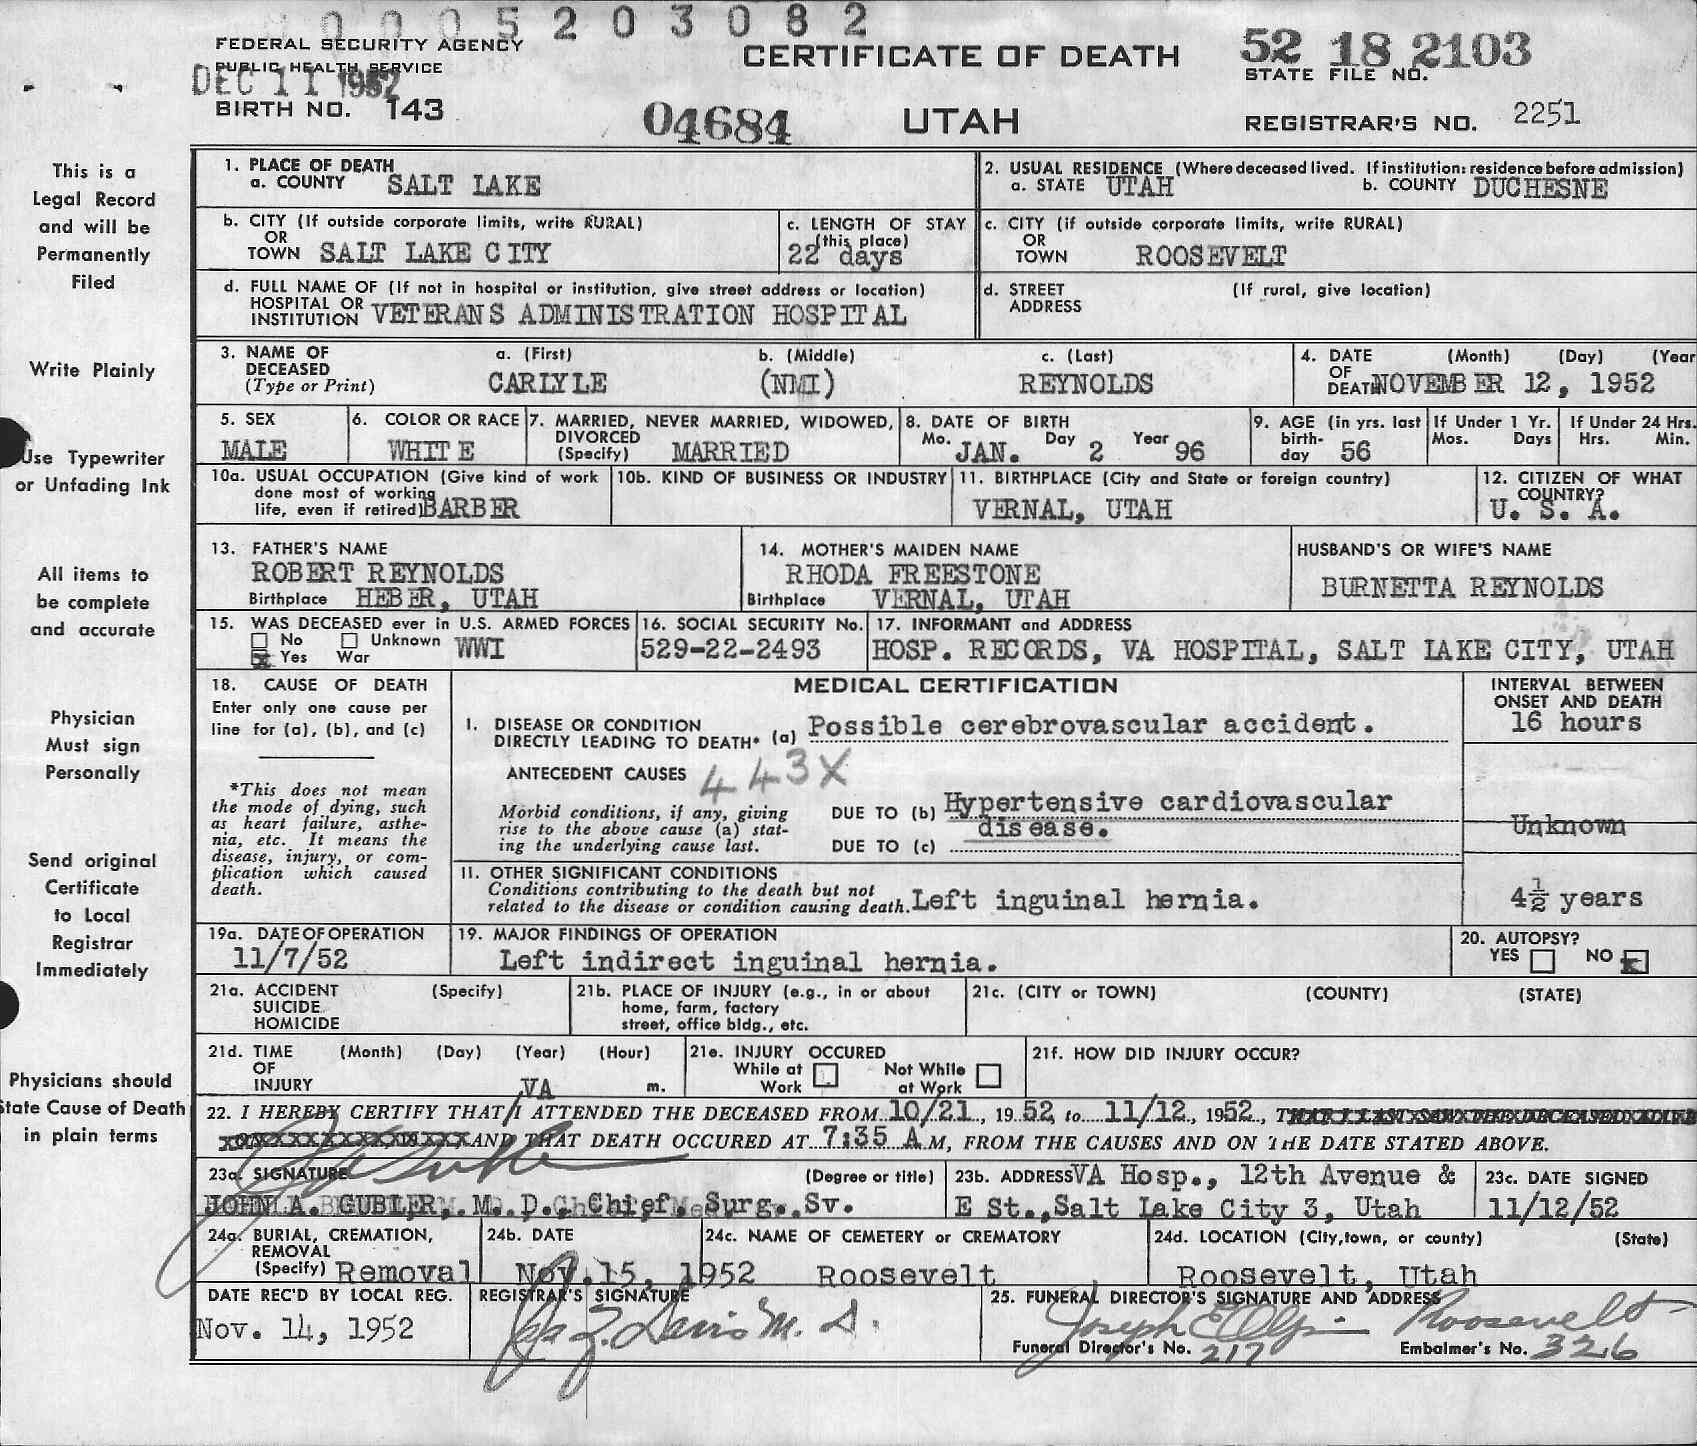 0005203082
FEDERAL SECURITY AGENCY
PUBLIC HEALTH SERVICE
DEC 11 1952
BIRTH NO. 143
04684
CERTIFICATE OF DEATH
UTAH
52 18 2103
STATE FILE NO.
REGISTRAR'S NO. 2251
This is a
Legal Record
and will be
Permanently
Filed
Write Plainly
Use Typewriter
or Unfading Ink
All items to
be complete
and accurate
Physician
Must sign
Personally
Send original
Certificate
to Local
Registrar
Immediately
Physicians should
State Cause of Death
in plain terms
1. PLACE OF DEATH
a. COUNTY SALT LAKE
2. USUAL RESIDENCE (Where deceased lived. If institution: residence before admission)
a. STATE UTAH b. COUNTY DUCHESNE
b. CITY (If outside corporate limits, write RURAL)
OR
TOWN SALT LAKE CITY
c. LENGTH OF STAY
(this place)
22 days
c. CITY (if outside corporate limits, write RURAL)
OR
TOWN ROOSEVELT
d. FULL NAME OF (If not in hospital or institution, give street address or location)
HOSPITAL OR
INSTITUTION VETERANS ADMINISTRATION HOSPITAL
d. STREET (If rural, give location)
ADDRESS
3. NAME OF
DECEASED
(Type or Print)
a. (First)
CARLYLE
b. (Middle)
(NMI)
c. (Last)
REYNOLDS
4. DATE (Month) (Day) (Year
OF
DEATH NOVEMBER 12, 1952
5. SEX
MALE
6. COLOR OR RACE
WHITE
7. MARRIED, NEVER MARRIED, WIDOWED,
DIVORCED
(Specify) MARRIED
8. DATE OF BIRTH
Mo. Day Year
JAN. 2 96
9. AGE (in yrs. last
birth-
day 56
If Under 1 Yr.
Mos. Days
If Under 24 Hrs.
Hrs. Min.
10a. USUAL OCCUPATION (Give kind of work
done most of working
life, even if retired) BARBER
10b. KIND OF BUSINESS OR INDUSTRY
11. BIRTHPLACE (City and State or foreign country)
VERNAL, UTAH
12. CITIZEN OF WHAT
COUNTRY?
U. S. A.
13. FATHER'S NAME
ROBERT REYNOLDS
Birthplace HEBER, UTAH
14. MOTHER'S MAIDEN NAME
RHODA FREESTONE
Birthplace VERNAL, UTAH
HUSBAND'S OR WIFE'S NAME
BURNETTA REYNOLDS
15. WAS DECEASED ever in U.S. ARMED FORCES
No Unknown
Yes War WWI
16. SOCIAL SECURITY No.
529-22-2493
17. INFORMANT and ADDRESS
HOSP. RECORDS, VA HOSPITAL, SALT LAKE CITY, UTAH
18. CAUSE OF DEATH
Enter only one cause per
line for (a), (b), and (c)
*This does not mean
the mode of dying, such
as heart failure, asthe-
nia, etc. It means the
disease, injury, or com-
plication which caused
death.
MEDICAL CERTIFICATION
INTERVAL BETWEEN
ONSET AND DEATH
I. DISEASE OR CONDITION
DIRECTLY LEADING TO DEATH* (a) Possible cerebrovascular accident.
16 hours
ANTECEDENT CAUSES 443X
Morbid conditions, if any, giving
rise to the above cause (a) stat-
ing the underlying cause last.
DUE TO (b) Hypertensive cardiovascular
disease.
Unknown
DUE TO (c)
11. OTHER SIGNIFICANT CONDITIONS
Conditions contributing to the death but not
related to the disease or condition causing death. Left inguinal hernia.
4½ years
19a. DATE OF OPERATION
11/7/52
19. MAJOR FINDINGS OF OPERATION
Left indirect inguinal hernia.
20. AUTOPSY?
YES NO
21a. ACCIDENT (Specify)
SUICIDE
HOMICIDE
21b. PLACE OF INJURY (e.g., in or about
home, farm, factory
street, office bldg., etc.
21c. (CITY or TOWN) (COUNTY) (STATE)
21d. TIME (Month) (Day) (Year) (Hour)
OF
INJURY m.
21e. INJURY OCCURED
While at Not While
Work at Work
21f. HOW DID INJURY OCCUR?
VA
22. I HEREBY CERTIFY THAT/I ATTENDED THE DECEASED FROM 10/21, 1952, to 11/12, 1952, THAT I LAST SAW THE DECEASED ALIVE
ON 19 AND THAT DEATH OCCURED AT 7:35 A M, FROM THE CAUSES AND ON THE DATE STATED ABOVE.
23a. SIGNATURE (Degree or title)
JOHN A. GUBLER, M. D., Chief, Surg. Sv.
23b. ADDRESS VA Hosp., 12th Avenue &
E St., Salt Lake City 3, Utah
23c. DATE SIGNED
11/12/52
24a. BURIAL, CREMATION,
REMOVAL
(Specify) Removal
24b. DATE
Nov. 15, 1952
24c. NAME OF CEMETERY or CREMATORY
Roosevelt
24d. LOCATION (City, town, or county) (State)
Roosevelt, Utah
DATE REC'D BY LOCAL REG.
Nov. 14, 1952
REGISTRAR'S SIGNATURE
Davis M. D.
25. FUNERAL DIRECTOR'S SIGNATURE AND ADDRESS
Joseph E Olpin Roosevelt
Funeral Director's No. 217
Embalmer's No. 326